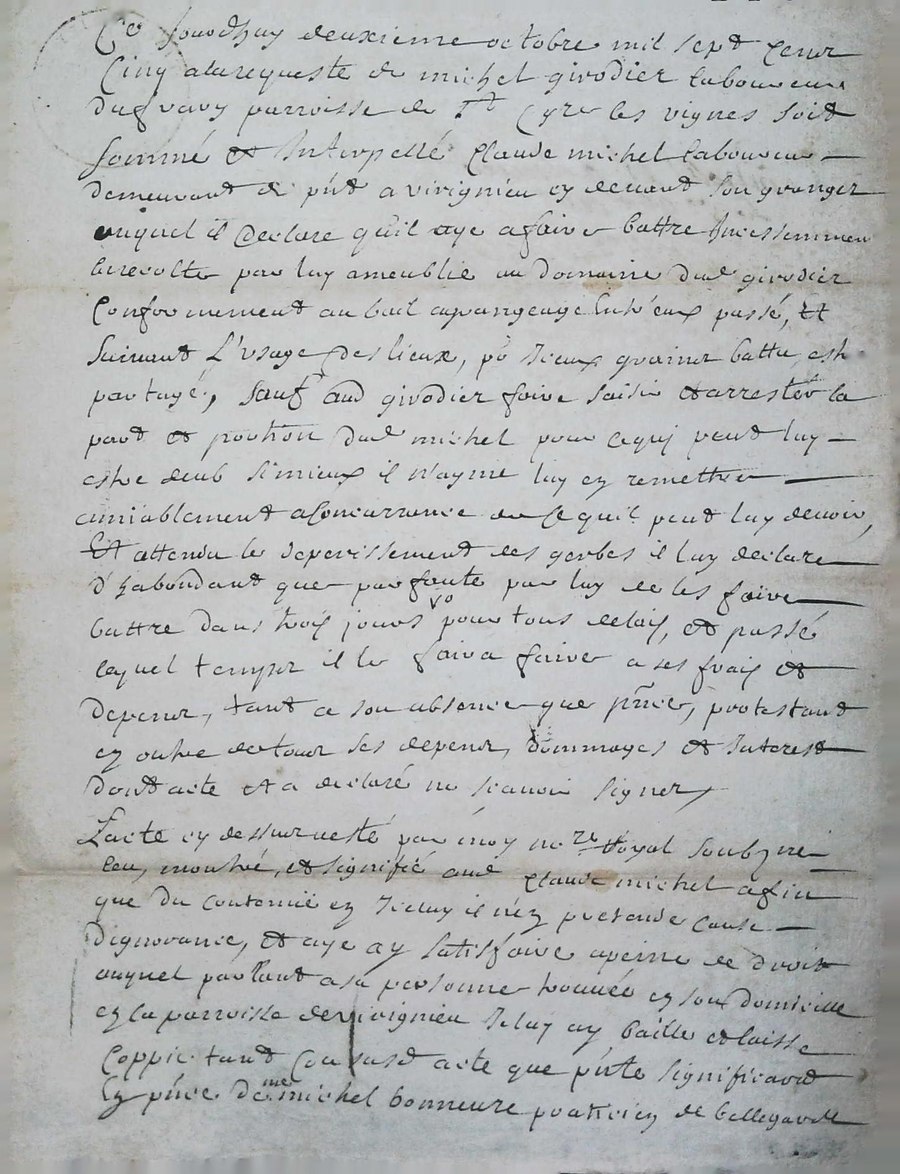 Ce jourdhuy deuxieme octobre mil sept Cent
Cinq alarequeste de michel girodier laboureur
du parroisse de St Cyre les vignes soit
sommé et Interpellé Claude michel laboureur
demeurant de pnt a virignieu cy devant son granger
auquel il Declare qu'il aye afaire battre Incessemment
larecolte par luy ameublie au Domaine dud girodier
Conformement au bail agrangeage Entr'eux passé, Et
suivant L'usage des lieux, pr Iceux grains battu estre
partagé, sauf aud girodier faire saisir et arrester la
part et portion dud michel pour cequi peut luy
estre deub si mieux il n'ayme luy en remettre
amiablement a Concurrance de Ce quil peut luy devoir,
Et attendu le deperissement des gerbes il luy declare
D'habondant que par faute par luy de les faire
battre dans trois jours pour tous delais, et passé
lequel temps il le faira faire a ses frais et
depens, tant a son absence que pnce, protestant
en outre de tous ses depens, dommages et Interest
dont acte et a declaré ne scavoir signer
L'acte cy dessus a esté par moy nore Royal soubzne
leu, monstré, et signifié aud Claude michel afin
que du contenu en Iceluy il n'en pretende cause
dignorance, et aye ay satisfaire apeine de droit
auquel parlant a sa personne trouvée en son domicille
en la parroisse de virignieu Je luy ay baille et laisse
Coppie tant du susd acte que pnte signification
En pnce de me michel bonneure praticien de bellegarde